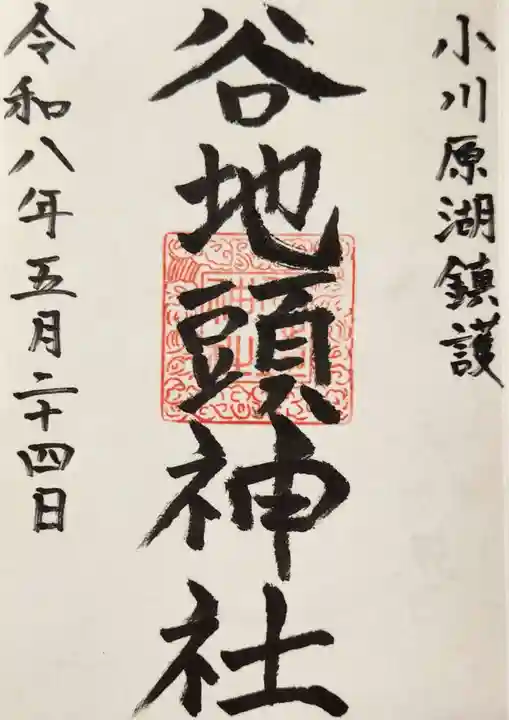 小川原湖鎮護
谷地頭神社
令和八年五月二十四日